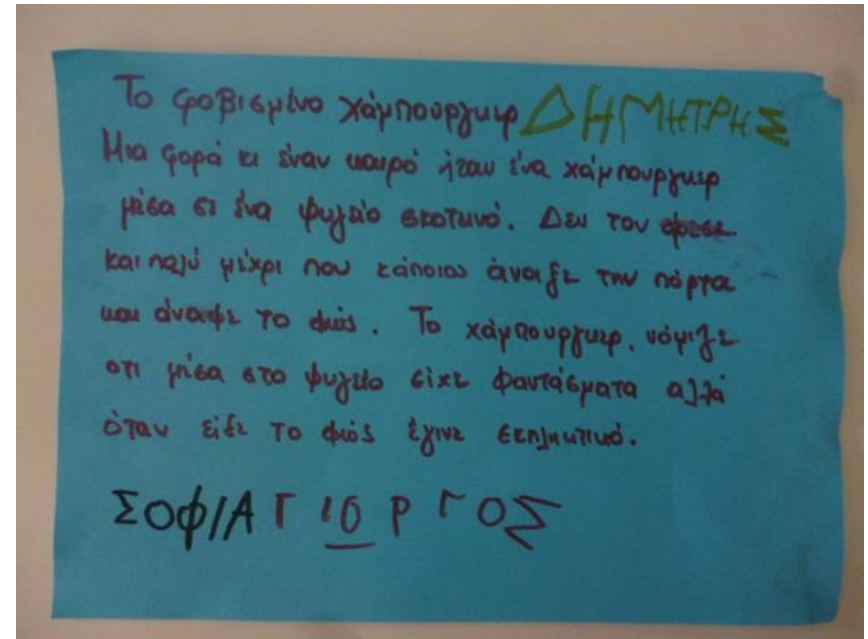 Το φοβισμένο χάμπουργκερ ΔΗΜΗΤΡΗΣ
Μια φορά κι έναν καιρό ήταν ένα χάμπουργκερ
μέσα σε ένα ψυγείο σκοτεινό. Δεν του
και πολύ μέχρι που κάποιος άνοιξε την πόρτα
και άναψε το φως. Το χάμπουργκερ, νόμιζε
οτι μέσα στο ψυγείο είχε φαντάσματα αλλά
όταν είδε το φώς έγινε
ΣΟΦΙΑ ΓΙΟΡΓΟΣ